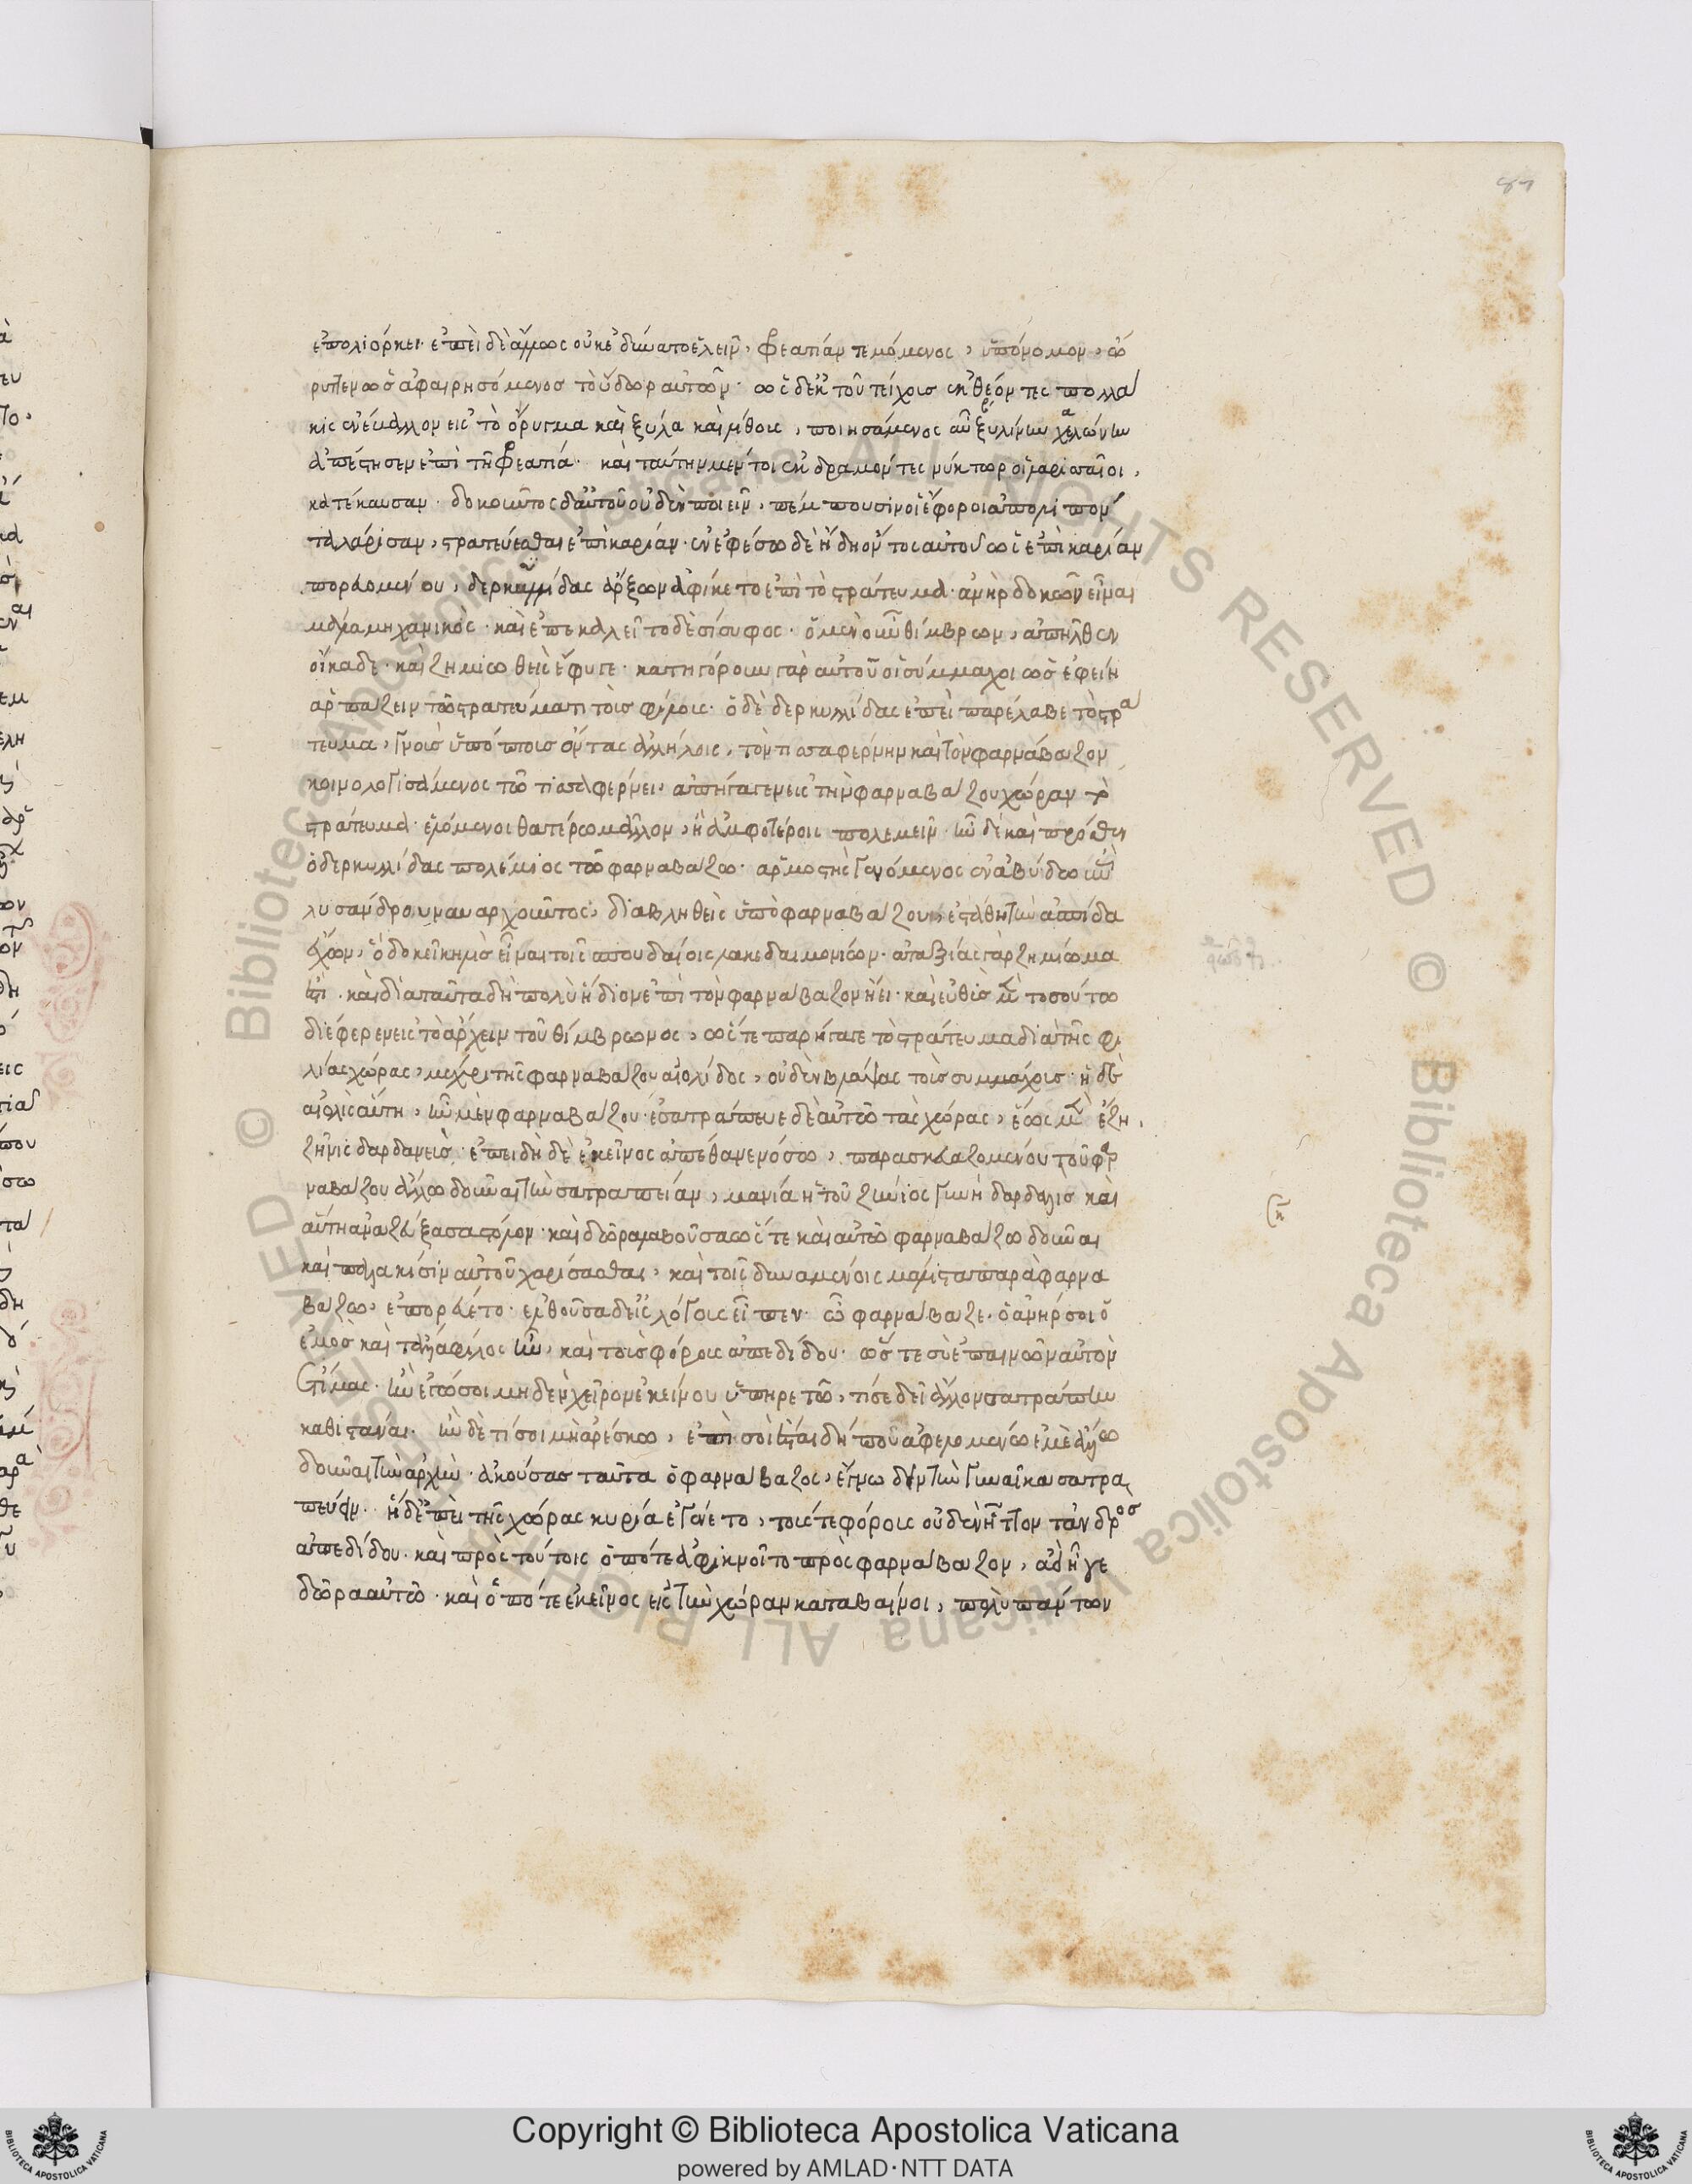 87
ἐπολιόρκει· ἐπεὶ δὲ ἄλλως οὐκ ἐδύνατο ἑλεῖν, φρεατίαν τεμόμενος, ὑπόνομον, ὤ
ρυττεν ὡς ἀφαιρησόμενος τὸ ὕδωρ αὐτῶν· ὡς δ' ἐκ τοῦ τείχους ἐκθέοντες πολλά
κις ἐνέβαλλον εἰς τὸ ὄρυγμα καὶ ξύλα καὶ λίθους, ποιησάμενος αὖ ξυλίνην χελώνην
ἐπέστησεν ἐπὶ τῇ φρεατίᾳ· καὶ ταύτην μέντοι ἐκδραμόντες νύκτωρ οἱ λαρισαῖοι,
κατέκαυσαν· δοκοῦντος δ' αὐτοῦ οὐδὲν ποιεῖν, πέμπουσιν οἱ ἔφοροι ἀπολιπόν
τα λάρισαν, στρατεύεσθαι ἐπὶ καρίαν· ἐν ἐφέσῳ δὲ ἤδη ὄντος αὐτοῦ ὡς ἐπὶ καρίαν
πορευομένου, δερκυλλίδας ἄρξων ἀφίκετο ἐπὶ τὸ στράτευμα· ἀνὴρ δοκῶν εἶναι
μάλα μηχανικὸς· καὶ ἐπεκαλεῖτο δὲ σίσυφος· ὁ μὲν οὖν θίμβρων, ἀπῆλθεν
οἴκαδε· καὶ ζημιωθεὶς ἔφυγε· κατηγόρουν γὰρ αὐτοῦ οἱ σύμμαχοι ὡς ἐφείη
ἁρπάζειν τῷ στρατεύματι τοὺς φίλους· ὁ δὲ δερκυλλίδας ἐπεὶ παρέλαβε τὸ στρά
τευμα, γνοὺς ὑπόπτους ὄντας ἀλλήλοις, τὸν τισσαφέρνην καὶ τὸν φαρνάβαζον
κοινολογησάμενος τῷ τισσαφέρνει· ἀπήγαγεν εἰς τὴν φαρναβάζου χώραν τὸ
στράτευμα· ἑλόμενος θατέρῳ μᾶλλον, ἢ ἀμφοτέροις πολεμεῖν· ἦν δὲ καὶ πρόσθεν
ὁ δερκυλλίδας πολέμιος τῷ φαρναβάζῳ· ἁρμοστὴς γενόμενος ἐν ἀβύδῳ ἐπὶ
λυσάνδρου ναυαρχοῦντος, διαβληθεὶς ὑπὸ φαρναβάζου, ἐστάθη τὴν ἀσπίδα
ἔχων, ὃ δοκεῖ κηλὶς εἶναι τοῖς σπουδαίοις λακεδαιμονίων· ἀταξίας γὰρ ζημίωμά
ἐστι· καὶ διὰ ταῦτα δὴ πολὺ ἥδιον ἐπὶ τὸν φαρνάβαζον ᾔει· καὶ εὐθὺς μὲν τοσούτῳ
διέφερεν εἰς τὸ ἄρχειν τοῦ θίμβρωνος, ὥστε παρήγαγε τὸ στράτευμα διὰ τῆς φι
λίας χώρας, μέχρι τῆς φαρναβάζου αἰολίδος, οὐδὲν βλάψας τοὺς συμμάχους· ἡ δὲ
αἰολὶς αὕτη, ἦν μὲν φαρναβάζου· ἐσατράπευε δὲ αὐτῷ ταύτης τῆς χώρας, ἕως μὲν ἔζη,
ζῆνις δαρδανεύς· ἐπειδὴ δὲ ἐκεῖνος ἀπέθανε νόσῳ, παρασκευαζομένου τοῦ φαρ
ναβάζου ἄλλῳ δοῦναι τὴν σατραπείαν, μανία ἡ τοῦ ζήνιος γυνὴ δαρδανὶς καὶ
αὕτη ἀναζεύξασα στόλον· καὶ δῶρα λαβοῦσα ὥστε καὶ αὐτῷ φαρναβάζῳ δοῦναι
καὶ παλλακίσιν αὐτοῦ χαρίσασθαι, καὶ τοῖς δυναμένοις μάλιστα παρὰ φαρνα
βάζῳ, ἐπορεύετο· ἐλθοῦσα δ' εἰς λόγους εἶπεν· ὦ φαρνάβαζε· ὁ ἀνήρ σοι ὁ
ἐμὸς καὶ τἄλλα φίλος ἦν, καὶ τοὺς φόρους ἀπεδίδου· ὥστε σὺ ἐπαινῶν αὐτὸν
ἐτίμας· ἢν οὖν ἐγώ σοι μηδὲν χεῖρον ἐκείνου ὑπηρετῶ, τί σε δεῖ ἄλλον σατράπην
καθιστάναι· ἢν δέ τί σοι μὴ ἀρέσκω, ἐπὶ σοὶ ἔσται δήπου ἀφελομένῳ ἐμὲ ἄλλῳ
δοῦναι τὴν ἀρχήν· ἀκούσας ταῦτα ὁ φαρνάβαζος, ἔγνω δεῖν τὴν γυναῖκα σατρα
πεύειν· ἡ δ' ἐπεὶ τῆς χώρας κυρία ἐγένετο, τούς τε φόρους οὐδὲν ἧττον τἀνδρὸς
ἀπεδίδου· καὶ πρὸς τούτοις ὁπότε ἀφικνοῖτο πρὸς φαρνάβαζον, ἀεὶ ἦγε
δῶρα αὐτῷ· καὶ ὁπότε ἐκεῖνος εἰς τὴν χώραν καταβαίνοι, πολὺ πάντων
Copyright © Biblioteca Apostolica Vaticana
powered by AMLAD·NTT DATA